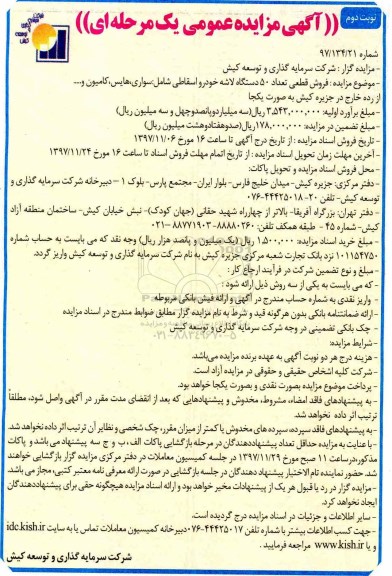 نوبت دوم
((آگهی مزایده عمومی یک مرحله ای))
شماره ۹۷/۱۳۴/۲۱
- مزایده گزار : شرکت سرمایه گذاری و توسعه کیش
- موضوع مزایده : فروش قطعی تعداد ۵۰ دستگاه لاشه خودرو اسقاطی شامل:سواری،هایس،کامیون و....
از رده خارج در جزیره کیش به صورت یکجا
- مبلغ برآورد اولیه: ۳,۵۴۳,۰۰۰,۰۰۰ ریال(سه میلیاردوپانصدوچهل و سه میلیون ریال)
- مبلغ تضمین در مزایده: ۱۷۸,۰۰۰,۰۰۰ریال(صدوهفتادوهشت میلیون ریال)
- تاریخ فروش اسناد مزایده : از تاریخ درج آگهی تا ساعت ۱۶ مورخ ۱۳۹۷/۱۱/۰۶
- آخرین مهلت زمان تحویل اسناد مزایده : از تاریخ اتمام مهلت فروش اسناد تا ساعت ۱۶ مورخ ۱۳۹۷/۱۱/۲۴
- محل فروش اسناد مزایده و تحویل پاکات:
- دفتر مرکزی: جزیره کیش-میدان خلیج فارس-بلوار ایران-مجتمع پارس-بلوک ۱ – دبیرخانه شرکت سرمایه گذاری و
توسعه کیش- تلفن ۲۰-۴۴۴۲۵۰۱۸-۰۷۶
- دفتر تهران: بزرگراه آفریقا- بالاتر از چهارراه شهید حقانی (جهان کودک)- نبش خیابان کیش- ساختمان منطقه آزاد
کیش- شماره ۴۵ - طبقه همکف تلفن: ۸۸۸۸۰۲۶۰- ۸۸۷۷۱۹۰۳-۰۲۱
- مبلغ خرید اسناد مزایده: ۱,۵۰۰,۰۰۰ ریال (یک میلیون و پانصد هزار ریال) وجه نقد که می بایست به حساب شماره
۱۰۱۱۵۴۷۵۰ نزد بانک تجارت شعبه مرکزی جزیره کیش به نام شرکت سرمایه گذاری و توسعه کیش واریز گردد.
- مبلغ و نوع تضمین شرکت در فرآیند ارجاع کار :
- که می بایست به یکی از سه روش ذیل ارائه شود :
- واریز نقدی به شماره حساب مندرج در آگهی و ارائه فیش بانکی مربوطه
- ارائه ضمانتنامه بانکی بدون هرگونه قید و شرط به نام مزایده گزار مطابق ضوابط مندرج در اسناد مزایده
- چک بانکی تضمینی در وجه شرکت سرمایه گذاری و توسعه کیش
- شرایط مزایده:
- هزینه درج هر دو نوبت آگهی به عهده برنده مزایده می‌باشد.
- شرکت کلیه اشخاص حقیقی و حقوقی در مزایده آزاد است.
- پرداخت موضوع مزایده بصورت نقدی و بصورت یکجا خواهد بود.
- به پیشنهادهای فاقد امضاء، مشروط، مخدوش و پیشنهادهایی که بعد از انقضای مدت مقرر در آگهی واصل شود، مطلقاً
ترتیب اثر داده نخواهد شد.
- به پیشنهادهای فاقد سپرده، سپرده های مخدوش یا کمتر از میزان مقرر، چک شخصی و نظایر آن ترتیب اثر داده نخواهد شد.
- با عنایت به مزایده حداقل تعداد پیشنهاددهندگان در مرحله بازگشایی پاکات الف، ب و ج سه پیشنهاد می باشد و پاکات
مذکور درساعت ۱۱ صبح مورخ ۱۳۹۷/۱۱/۲۹ در جلسه کمیسیون معاملات در دفتر مرکزی مزایده گزار بازگشایی خواهند
شد. حضور نماینده تام الاختیار پیشنهاد دهندگان در جلسه بازگشایی در صورت ارائه معرفی نامه معتبر کتبی، مجاز می باشد.
- مزایده گزار در رد یا قبول هر یک از پیشنهادات مخیر خواهد بود و ارائه اسناد مزایده هیچگونه حقی برای پیشنهاددهندگان
ایجاد نخواهد کرد.
- سایر اطلاعات و جزئیات در اسناد مزایده درج گردیده است.
- جهت کسب اطلاعات بیشتر با شماره تلفن ۴۴۴۲۵۰۱۷-۰۷۶ دبیرخانه کمیسیون معاملات تماس یا به سایت idc.kish.ir
و یا www.kish.ir مراجعه فرمایید .
شرکت سرمایه گذاری و توسعه کیش